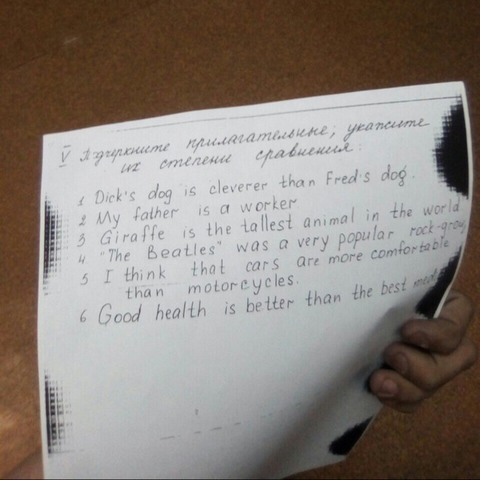 V Подчеркните прилагательные, укажите
их степени сравнения:
1 Dick's dog is cleverer than Fred's dog.
2 My father is a worker
3 Giraffe is the tallest animal in the world
4 "The Beatles" was a very popular rock-grou
5 I think that cars are more comfortable
than motorcycles.
6 Good health is better than the best med